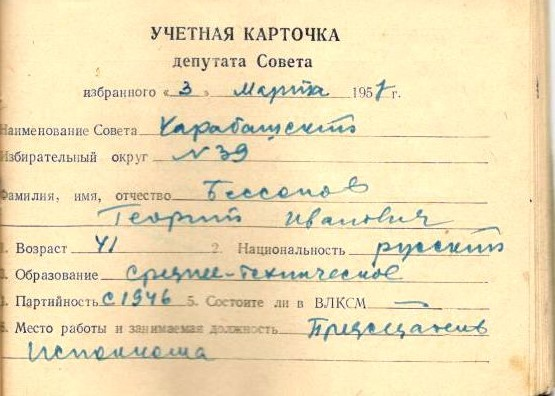 УЧЕТНАЯ КАРТОЧКА
депутата Совета
избранного « 3 » марта 1957 г.
Наименование Совета Карабашского
Избирательный округ № 39
Фамилия, имя, отчество Бессонов
Георгий Иванович
1. Возраст 41 2. Национальность русский
3. Образование среднее-техническое
4. Партийность с 1946 5. Состоите ли в ВЛКСМ —
6. Место работы и занимаемая должность Председатель
исполкома